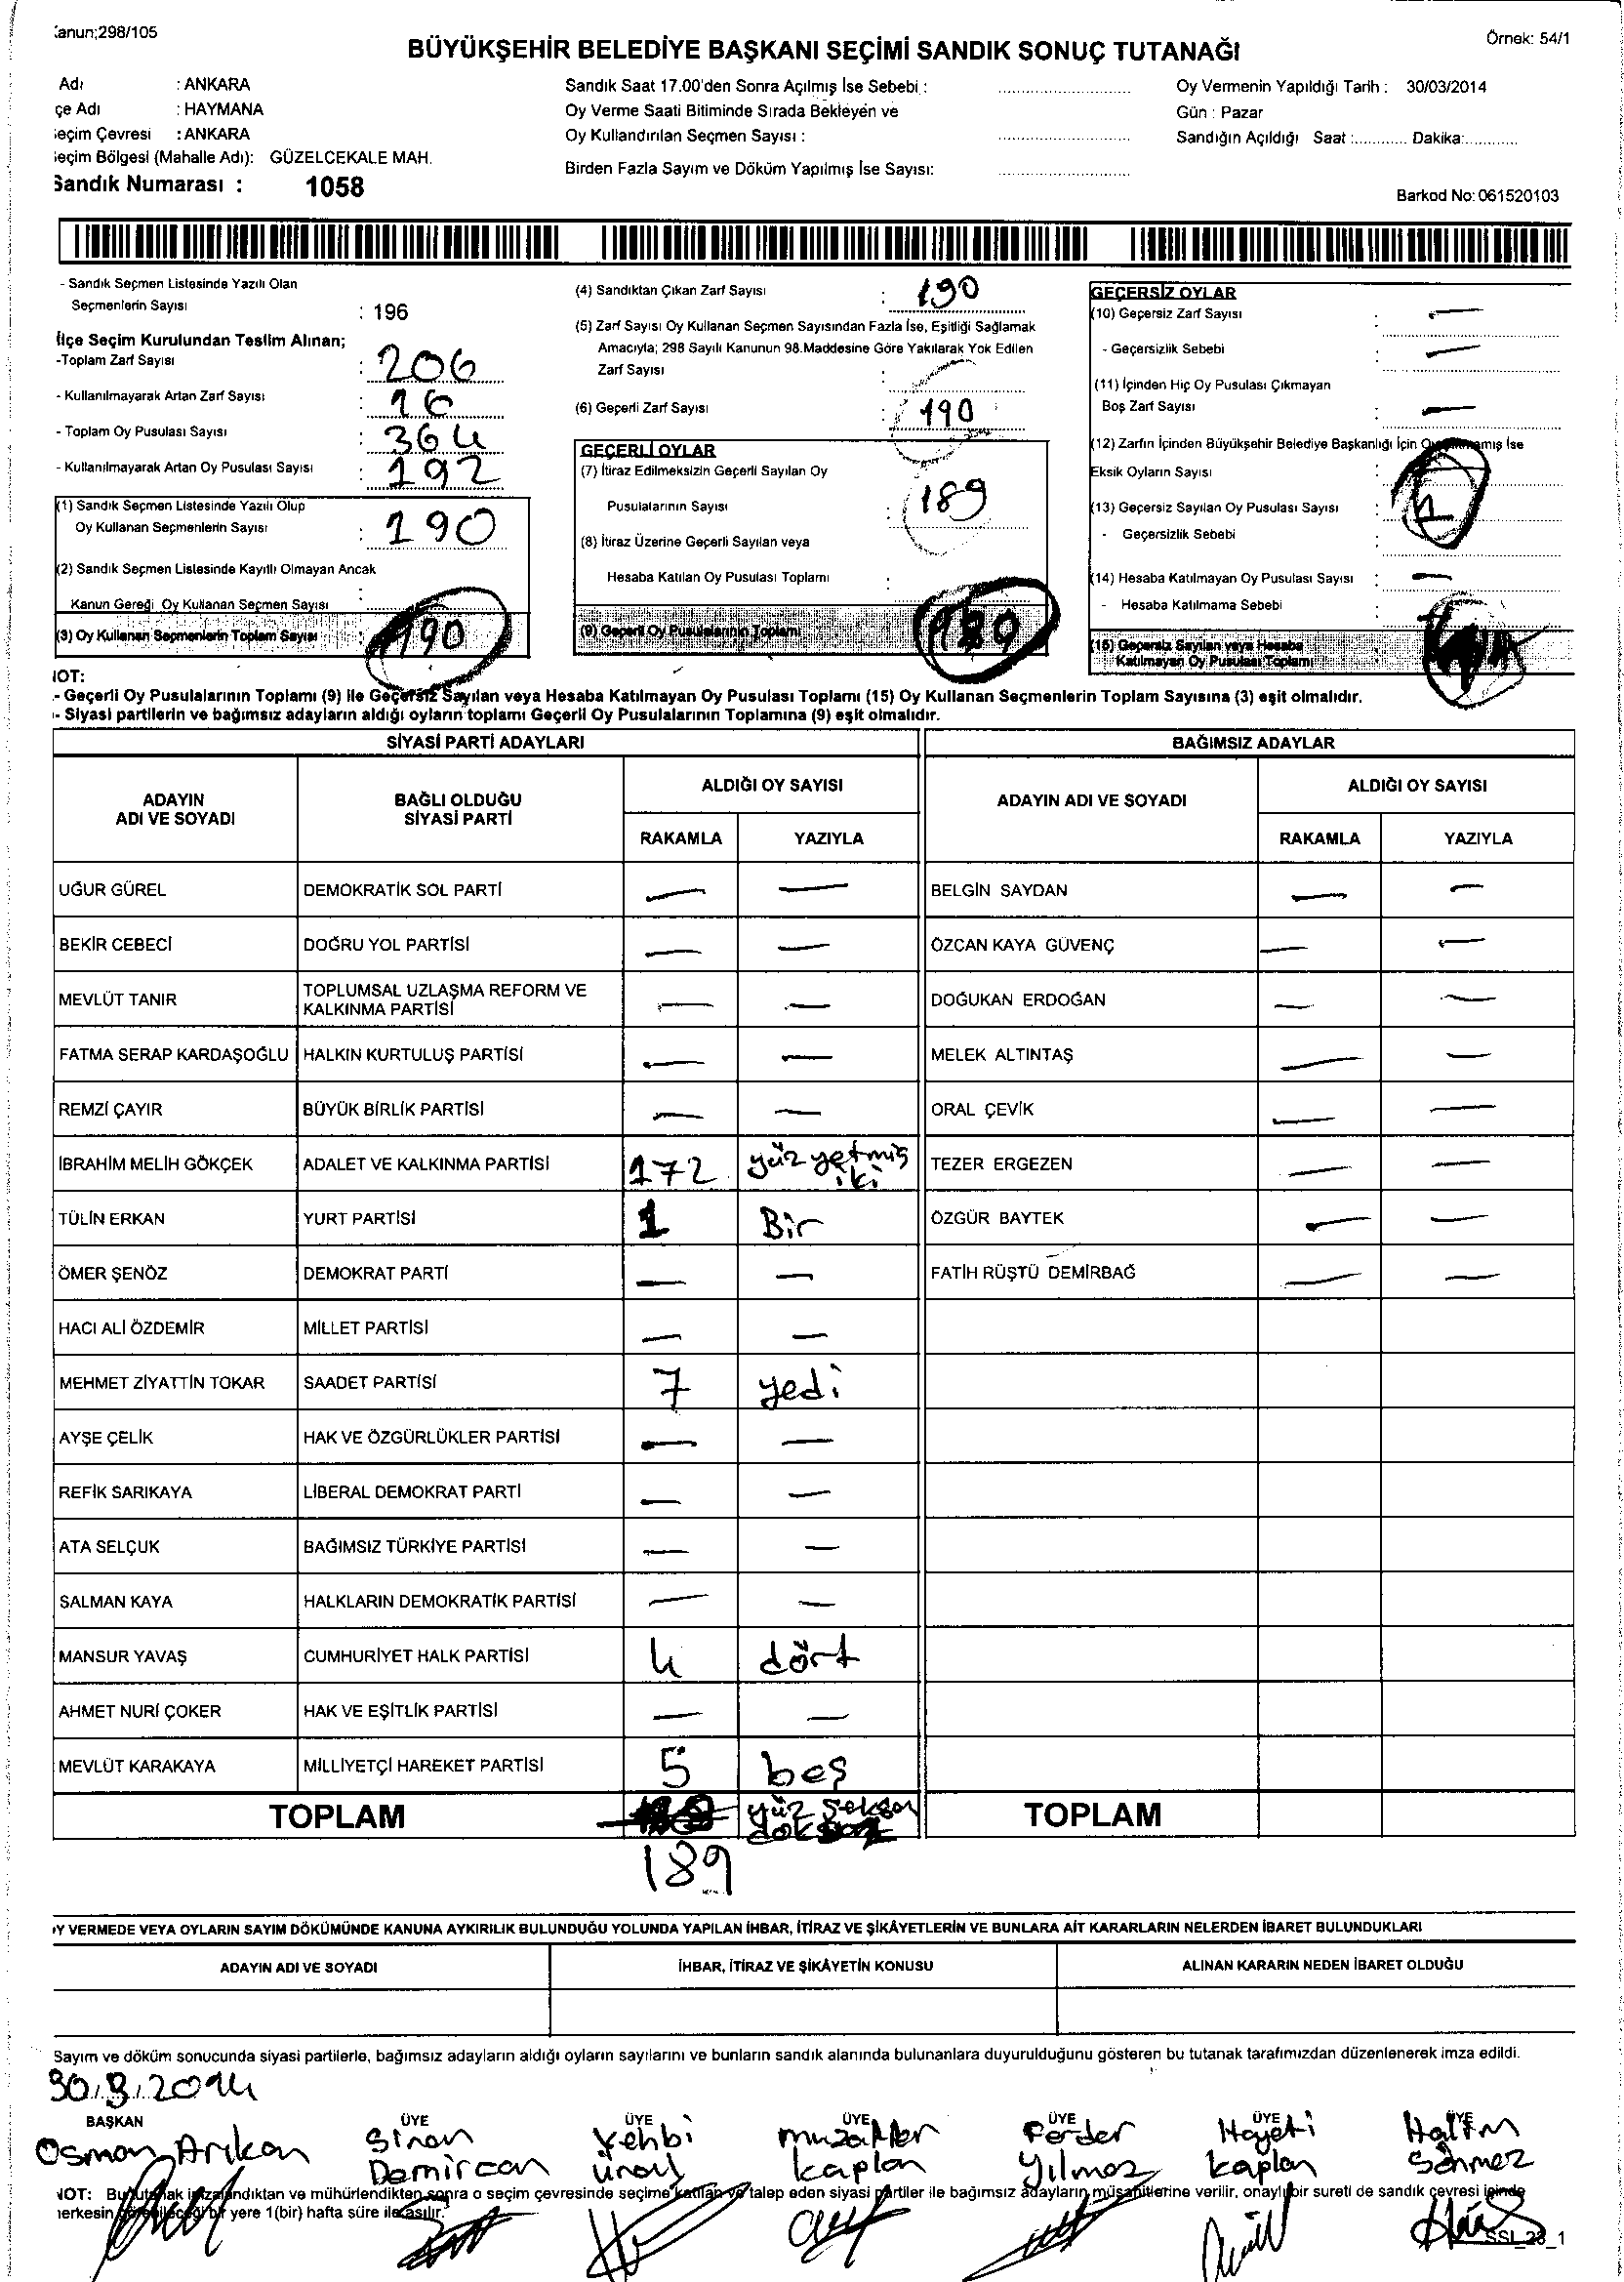 Kanun;298/105
Örnek: 54/1
BÜYÜKŞEHİR BELEDİYE BAŞKANI SEÇİMİ SANDIK SONUÇ TUTANAĞI
Adı : ANKARA
çe Adı : HAYMANA
eçim Çevresi : ANKARA
eçim Bölgesi (Mahalle Adı): GÜZELCEKALE MAH.
Sandık Numarası : 1058
Sandık Saat 17.00'den Sonra Açılmış İse Sebebi :
Oy Verme Saati Bitiminde Sırada Bekleyen ve
Oy Kullandırılan Seçmen Sayısı :
Birden Fazla Sayım ve Döküm Yapılmış İse Sayısı:
Oy Vermenin Yapıldığı Tarih : 30/03/2014
Gün : Pazar
Sandığın Açıldığı Saat :............ Dakika:............
Barkod No: 061520103
- Sandık Seçmen Listesinde Yazılı Olan
Seçmenlerin Sayısı : 196
İlçe Seçim Kurulundan Teslim Alınan;
-Toplam Zarf Sayısı : 206
- Kullanılmayarak Artan Zarf Sayısı : 16
- Toplam Oy Pusulası Sayısı : 364
- Kullanılmayarak Artan Oy Pusulası Sayısı : 192
(1) Sandık Seçmen Listesinde Yazılı Olup
Oy Kullanan Seçmenlerin Sayısı : 190
(2) Sandık Seçmen Listesinde Kayıtlı Olmayan Ancak
Kanun Gereği Oy Kullanan Seçmen Sayısı :
(3) Oy Kullanan Seçmenlerin Toplam Sayısı : 190
(4) Sandıktan Çıkan Zarf Sayısı : 190
(5) Zarf Sayısı Oy Kullanan Seçmen Sayısından Fazla İse, Eşitliği Sağlamak
Amacıyla; 298 Sayılı Kanunun 98.Maddesine Göre Yakılarak Yok Edilen
Zarf Sayısı : —
(6) Geçerli Zarf Sayısı : 190
GEÇERLİ OYLAR
(7) İtiraz Edilmeksizin Geçerli Sayılan Oy
Pusulalarının Sayısı : 189
(8) İtiraz Üzerine Geçerli Sayılan veya
Hesaba Katılan Oy Pusulası Toplamı :
(9) Geçerli Oy Pusulalarının Toplamı
GEÇERSİZ OYLAR
(10) Geçersiz Zarf Sayısı : —
- Geçersizlik Sebebi : —
(11) İçinden Hiç Oy Pusulası Çıkmayan
Boş Zarf Sayısı : —
(12) Zarfın İçinden Büyükşehir Belediye Başkanlığı İçin mış İse
Eksik Oyların Sayısı
(13) Geçersiz Sayılan Oy Pusulası Sayısı : 1
- Geçersizlik Sebebi :
(14) Hesaba Katılmayan Oy Pusulası Sayısı : —
- Hesaba Katılmama Sebebi :
(15) Geçersiz Sayılan veya Hesaba
Katılmayan Oy Pusulası Toplamı
NOT:
.- Geçerli Oy Pusulalarının Toplamı (9) ile Geçersiz Sayılan veya Hesaba Katılmayan Oy Pusulası Toplamı (15) Oy Kullanan Seçmenlerin Toplam Sayısına (3) eşit olmalıdır.
- Siyasi partilerin ve bağımsız adayların aldığı oyların toplamı Geçerli Oy Pusulalarının Toplamına (9) eşit olmalıdır.
SİYASİ PARTİ ADAYLARI BAĞIMSIZ ADAYLAR
ADAYIN ADI VE SOYADI BAĞLI OLDUĞU SİYASİ PARTİ ALDIĞI OY SAYISI ADAYIN ADI VE SOYADI ALDIĞI OY SAYISI
RAKAMLA YAZIYLA RAKAMLA YAZIYLA
UĞUR GÜREL DEMOKRATİK SOL PARTİ — — BELGİN SAYDAN — —
BEKİR CEBECİ DOĞRU YOL PARTİSİ — — ÖZCAN KAYA GÜVENÇ — —
MEVLÜT TANIR TOPLUMSAL UZLAŞMA REFORM VE KALKINMA PARTİSİ — — DOĞUKAN ERDOĞAN — —
FATMA SERAP KARDAŞOĞLU HALKIN KURTULUŞ PARTİSİ — — MELEK ALTINTAŞ — —
REMZİ ÇAYIR BÜYÜK BİRLİK PARTİSİ — — ORAL ÇEVİK — —
İBRAHİM MELİH GÖKÇEK ADALET VE KALKINMA PARTİSİ 172 yüz yetmiş iki TEZER ERGEZEN — —
TÜLİN ERKAN YURT PARTİSİ 1 Bir ÖZGÜR BAYTEK — —
ÖMER ŞENÖZ DEMOKRAT PARTİ — — FATİH RÜŞTÜ DEMİRBAĞ — —
HACI ALİ ÖZDEMİR MİLLET PARTİSİ — —
MEHMET ZİYATTİN TOKAR SAADET PARTİSİ 7 yedi
AYŞE ÇELİK HAK VE ÖZGÜRLÜKLER PARTİSİ — —
REFİK SARIKAYA LİBERAL DEMOKRAT PARTİ — —
ATA SELÇUK BAĞIMSIZ TÜRKİYE PARTİSİ — —
SALMAN KAYA HALKLARIN DEMOKRATİK PARTİSİ — —
MANSUR YAVAŞ CUMHURİYET HALK PARTİSİ 4 dört
AHMET NURİ ÇOKER HAK VE EŞİTLİK PARTİSİ — —
MEVLÜT KARAKAYA MİLLİYETÇİ HAREKET PARTİSİ 5 beş
TOPLAM yüz seksen TOPLAM
189
OY VERMEDE VEYA OYLARIN SAYIM DÖKÜMÜNDE KANUNA AYKIRILIK BULUNDUĞU YOLUNDA YAPILAN İHBAR, İTİRAZ VE ŞİKÂYETLERİN VE BUNLARA AİT KARARLARIN NELERDEN İBARET BULUNDUKLARI
ADAYIN ADI VE SOYADI İHBAR, İTİRAZ VE ŞİKÂYETİN KONUSU ALINAN KARARIN NEDEN İBARET OLDUĞU
Sayım ve döküm sonucunda siyasi partilerle, bağımsız adayların aldığı oyların sayılarını ve bunların sandık alanında bulunanlara duyurulduğunu gösteren bu tutanak tarafımızdan düzenlenerek imza edildi.
30.3.2014
BAŞKAN ÜYE ÜYE ÜYE ÜYE ÜYE ÜYE
Osman Arıkan Sinan Demircan Vehbi Ünal Muzaffer Kaplan Ferder Yılmaz Hayati Kaplan Halim Sönmez
NOT: Bu tutanak imzalandıktan ve mühürlendikten sonra o seçim çevresinde seçime katılan ve talep eden siyasi partiler ile bağımsız adayların müşahitlerine verilir, onaylı bir sureti de sandık çevresi içinde
herkesin görebileceği bir yere 1(bir) hafta süre ile asılır.
SSL_23_1